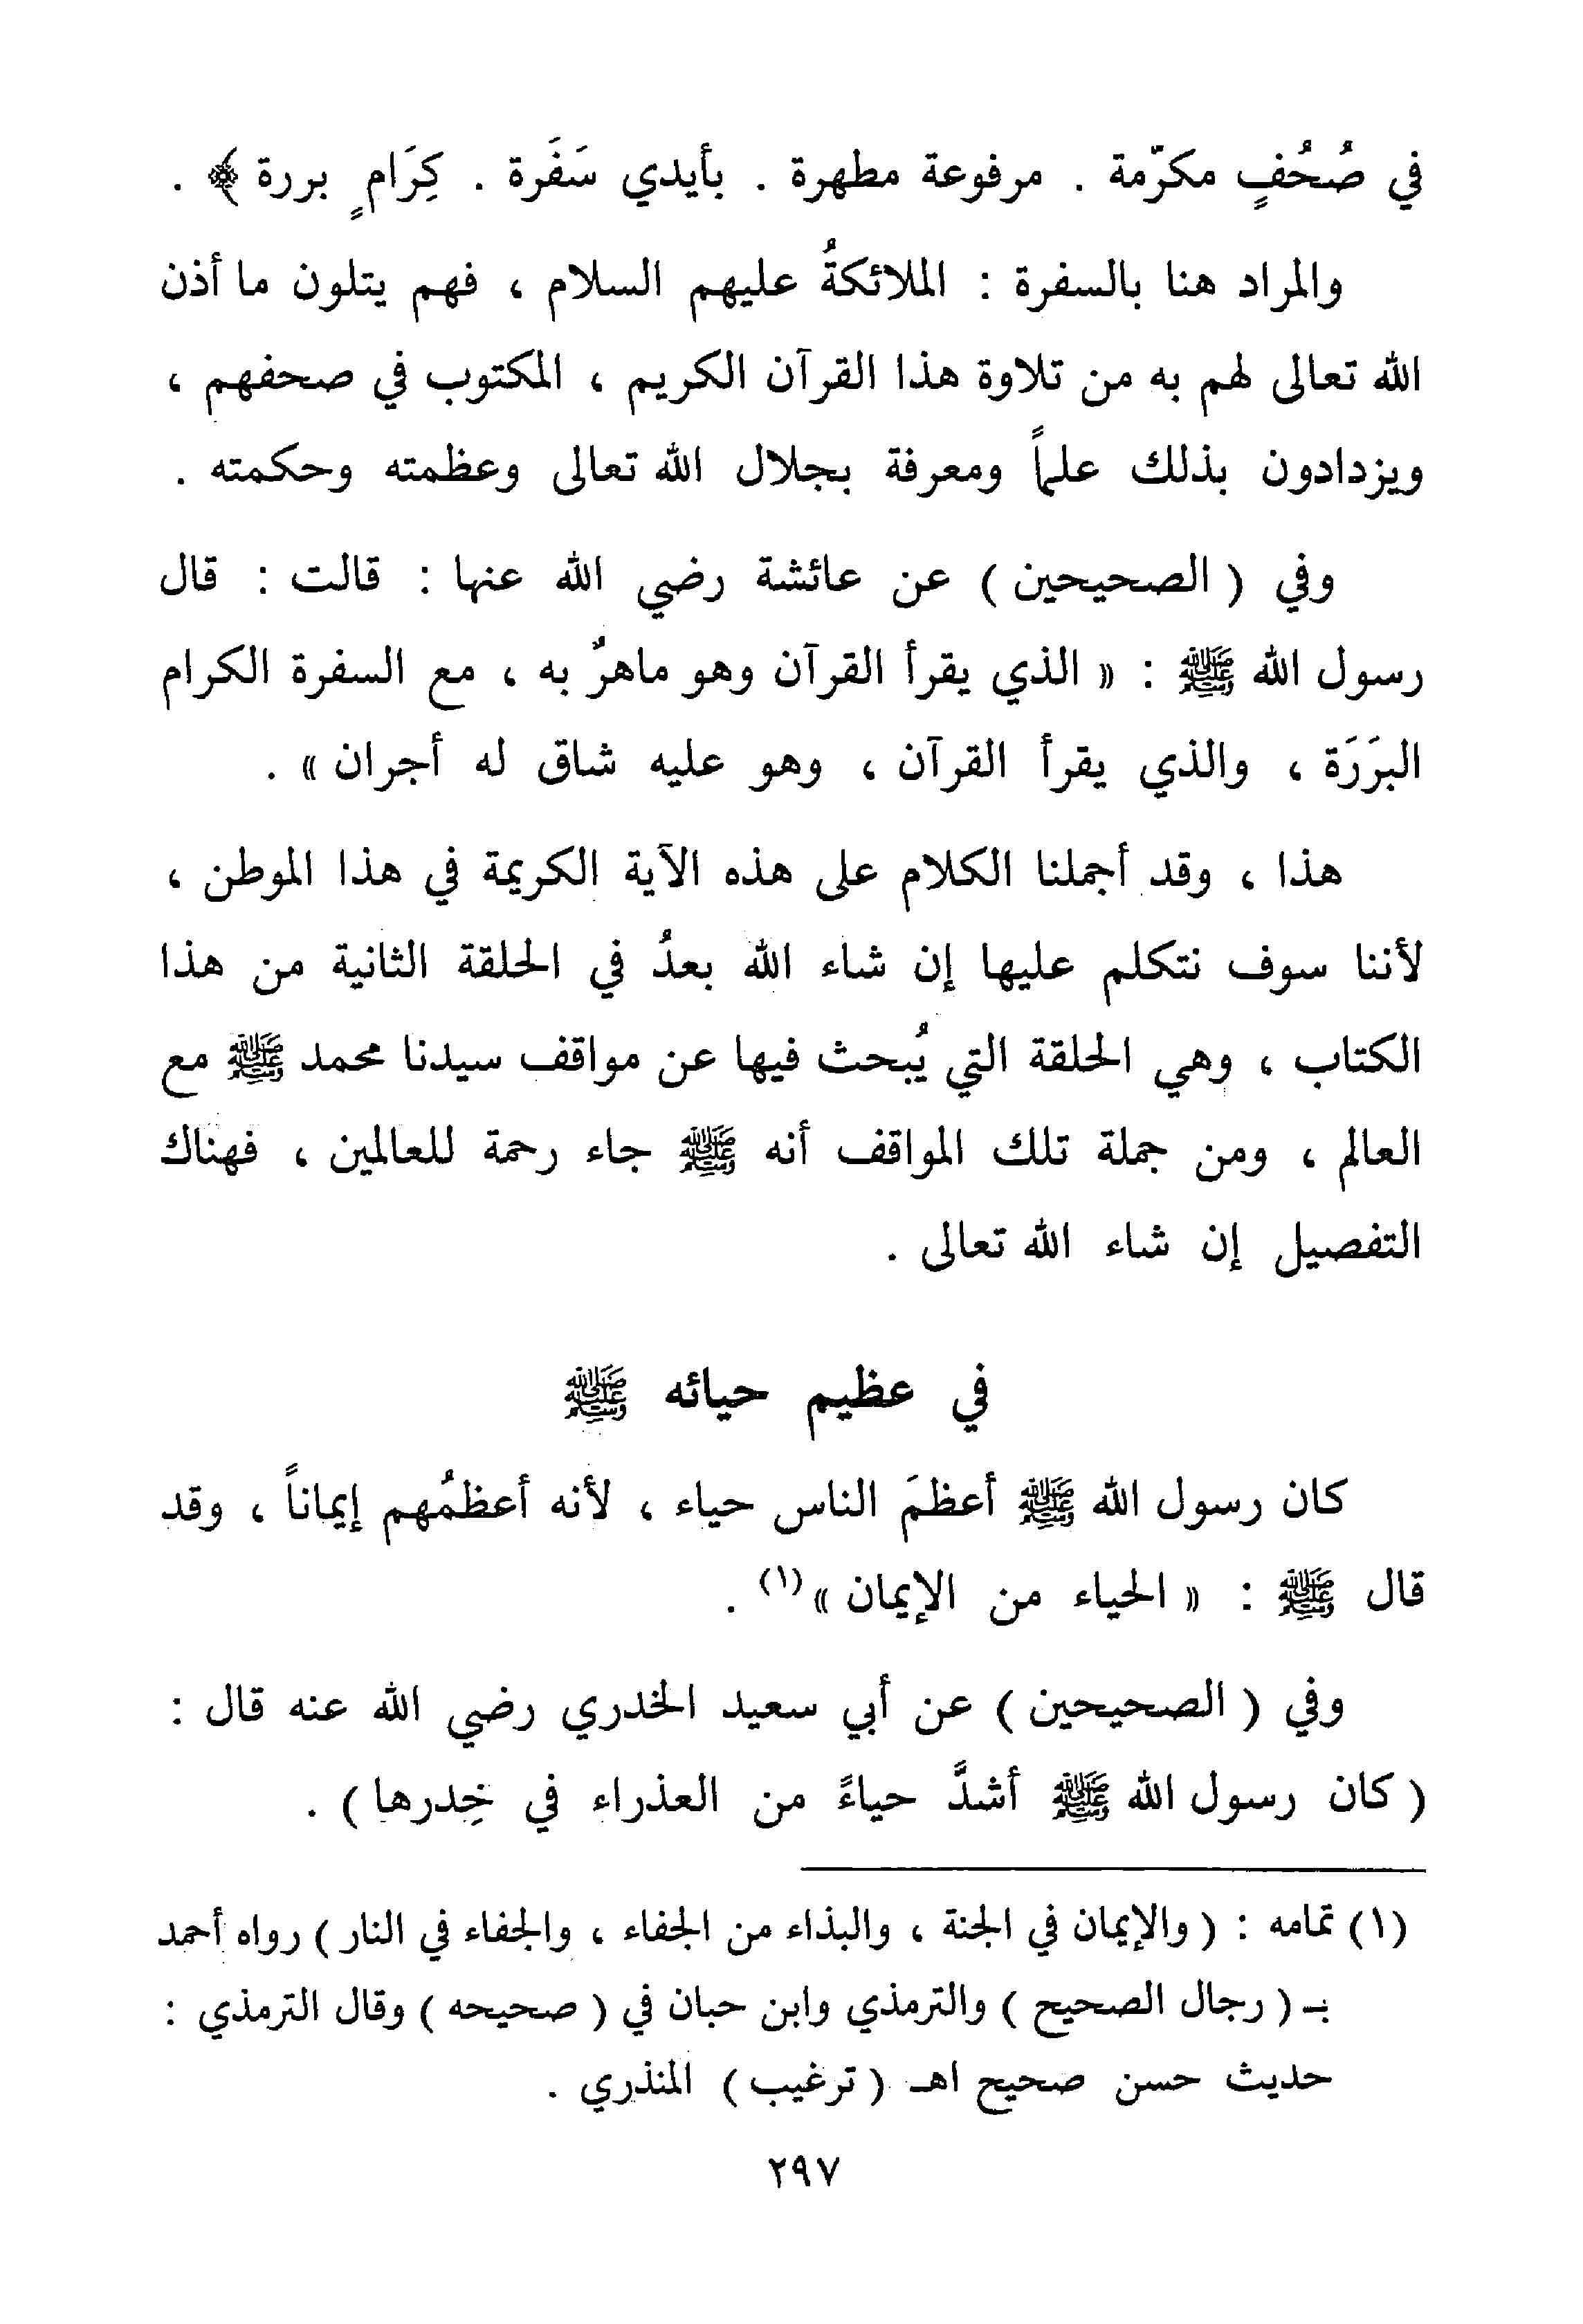 في صُحُفٍ مكرّمة . مرفوعة مطهرة . بأيدي سَفَرة . كِرَامٍ بررة ﴾ .
والمراد هنا بالسفرة : الملائكةُ عليهم السلام ، فهم يتلون ما أذن
الله تعالى لهم به من تلاوة هذا القرآن الكريم ، المكتوب في صحفهم ،
ويزدادون بذلك علماً ومعرفة بجلال الله تعالى وعظمته وحكمته .
وفي ( الصحيحين ) عن عائشة رضي الله عنها : قالت : قال
رسول الله ﷺ : « الذي يقرأ القرآن وهو ماهرٌ به ، مع السفرة الكرام
البرَرَة ، والذي يقرأ القرآن ، وهو عليه شاق له أجران » .
هذا ، وقد أجملنا الكلام على هذه الآية الكريمة في هذا الموطن ،
لأننا سوف نتكلم عليها إن شاء الله بعدُ في الحلقة الثانية من هذا
الكتاب ، وهي الحلقة التي يُبحث فيها عن مواقف سيدنا محمد ﷺ مع
العالم ، ومن جملة تلك المواقف أنه ﷺ جاء رحمة للعالمين ، فهناك
التفصيل إن شاء الله تعالى .
في عظيم حيائه ﷺ
كان رسول الله ﷺ أعظمَ الناس حياء ، لأنه أعظمُهم إيماناً ، وقد
قال ﷺ : « الحياء من الإيمان »(١) .
وفي ( الصحيحين ) عن أبي سعيد الخدري رضي الله عنه قال :
( كان رسول الله ﷺ أشدَّ حياءً من العذراء في خِدرها ) .
(١) تمامه : ( والإيمان في الجنة ، والبذاء من الجفاء ، والجفاء في النار ) رواه أحمد
بـ ( رجال الصحيح ) والترمذي وابن حبان في ( صحيحه ) وقال الترمذي :
حديث حسن صحيح اهـ ( ترغيب ) المنذري .
٢٩٧